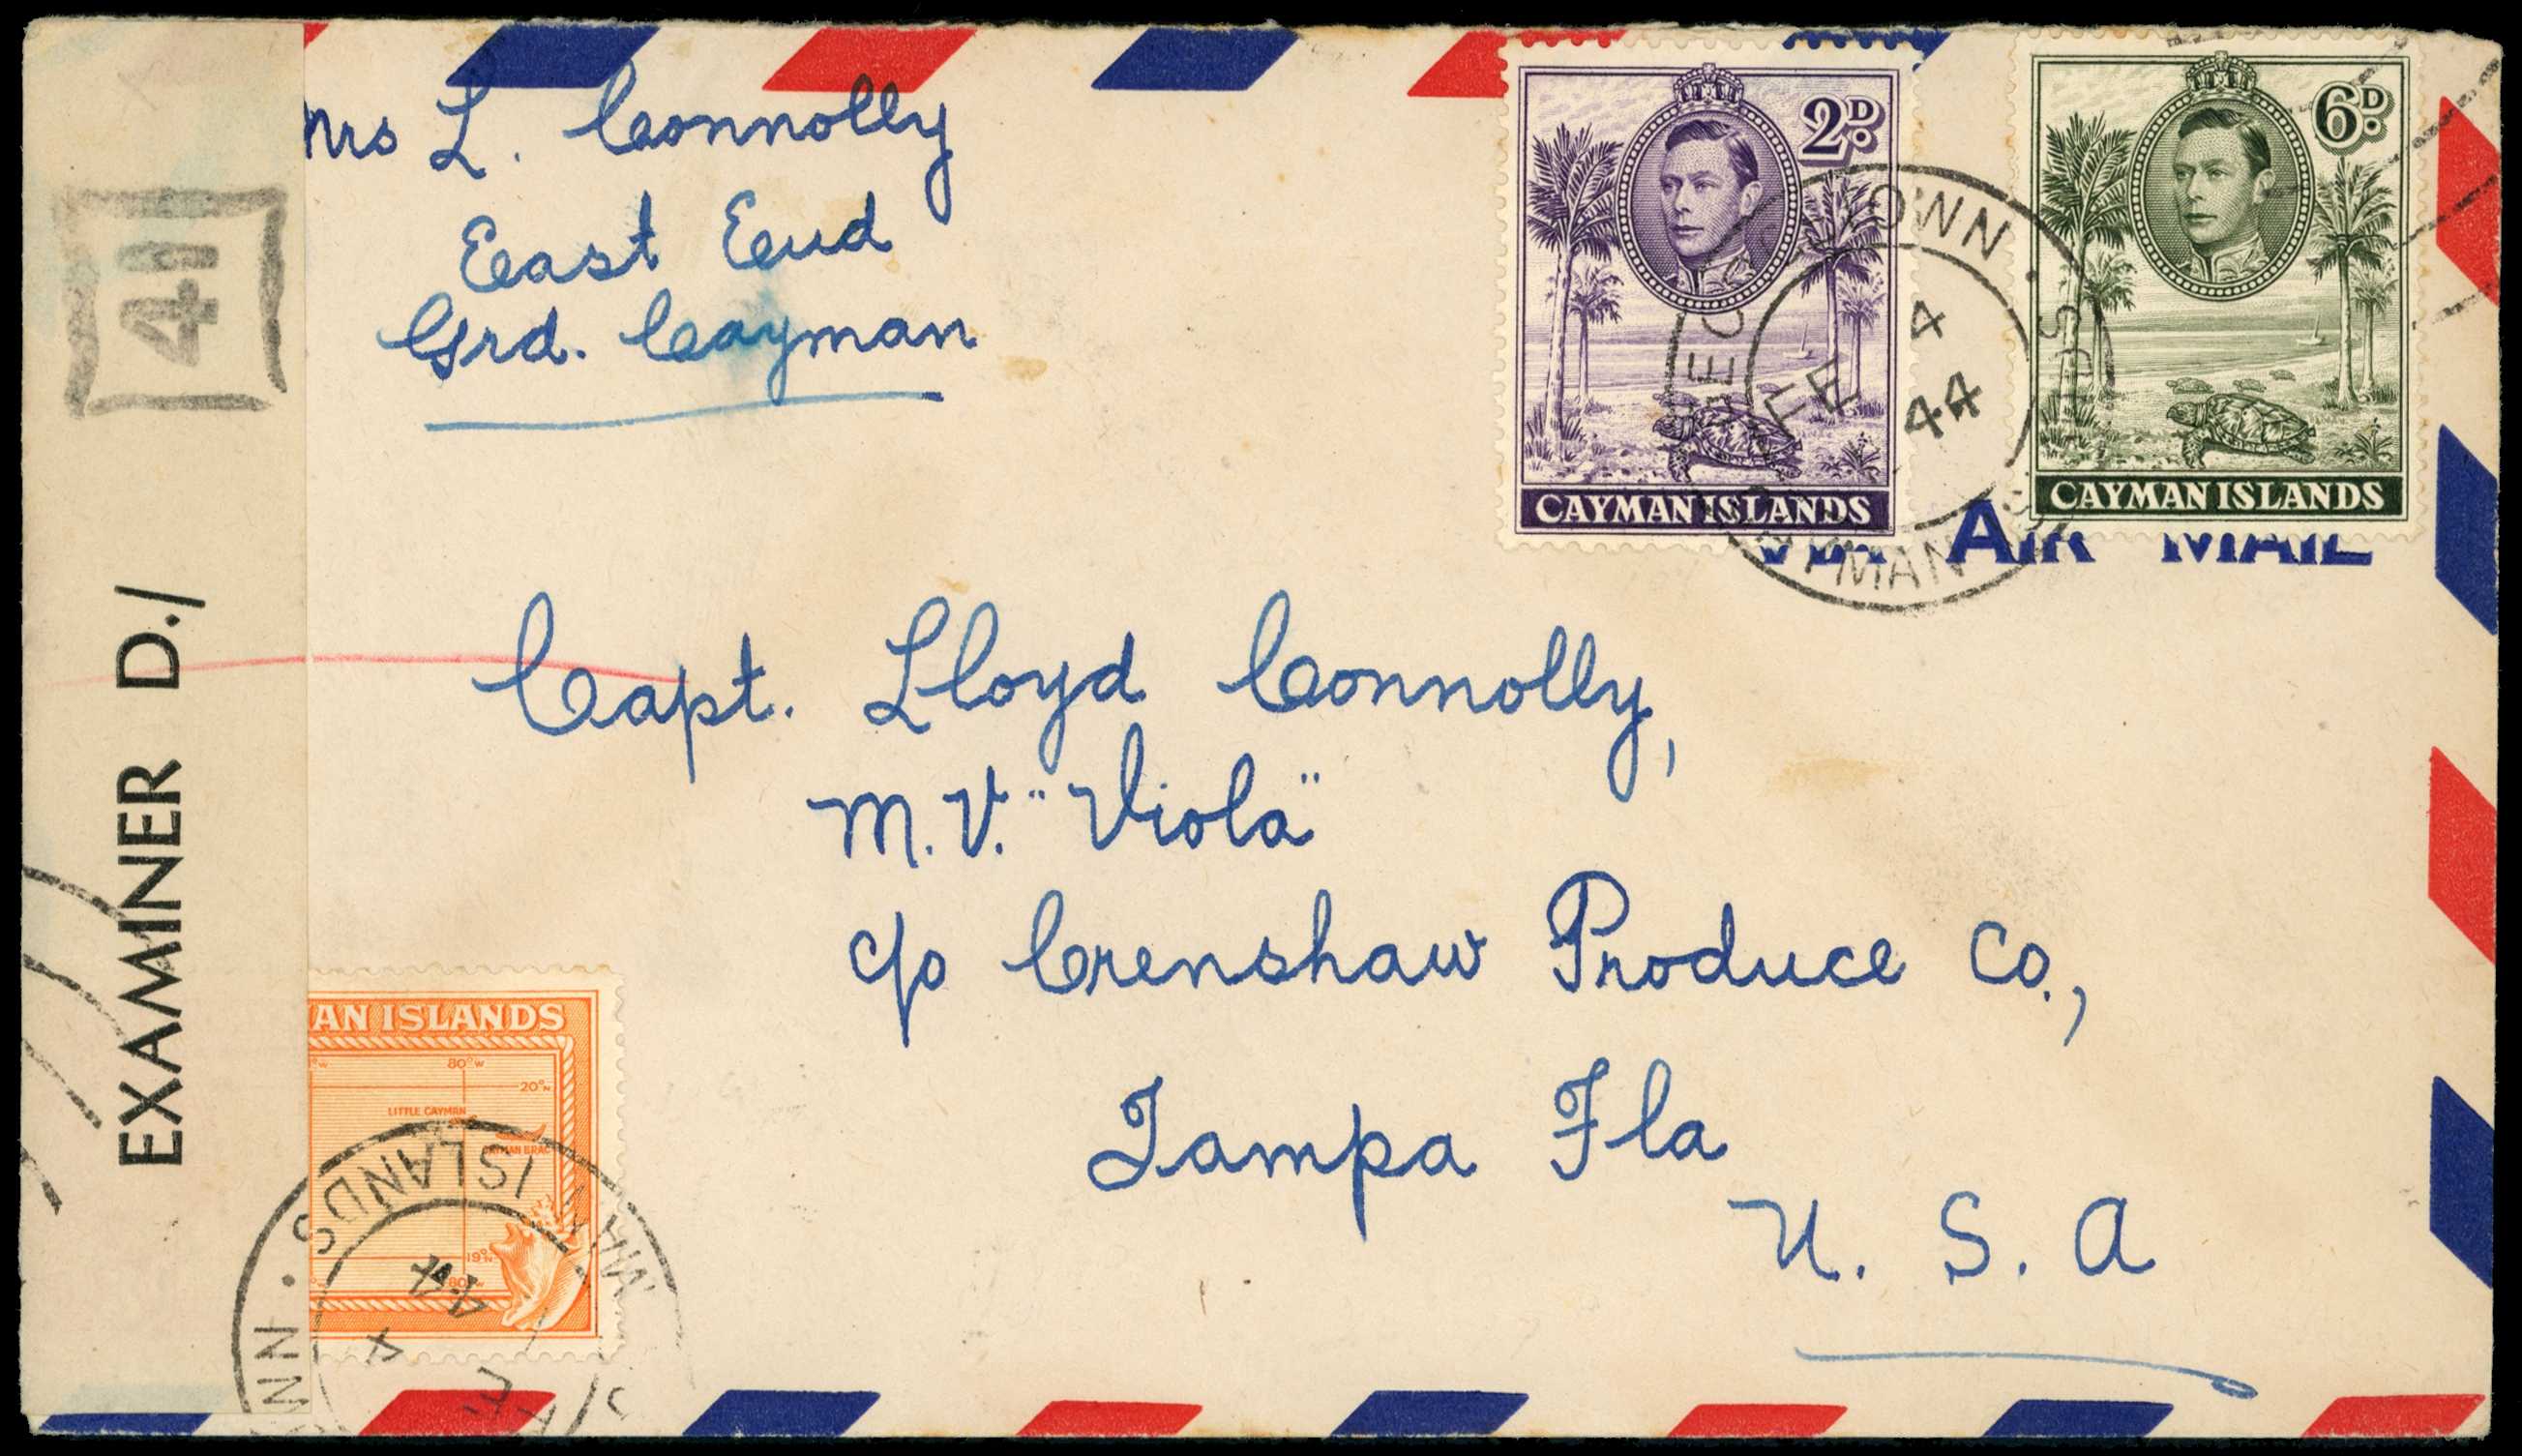 Mrs L. Connolly
East End
Grd. Cayman
2D.
CAYMAN ISLANDS
6D.
CAYMAN ISLANDS
TOWN
FE 4
44
VIA AIR MAIL
41
EXAMINER D./
Capt. Lloyd Connolly,
M.V. "Viola"
c/o Crenshaw Produce Co.,
Tampa Fla
U. S. A
AN ISLANDS
80°W
20°N
LITTLE CAYMAN
CAYMAN BRAC
19°N
80°W
MAN ISLANDS
44
4
FE